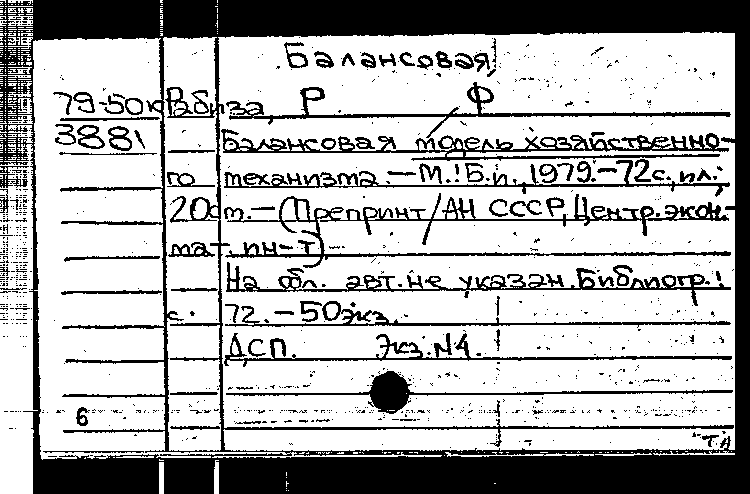 Балансовая
79-50к Рабиза, Р. Ф
3881 Балансовая модель хозяйственно-
го механизма.—М.: Б.и., 1979.—72с., ил.;
20см.—(Препринт/АН СССР, Центр. экон.-
мат. ин-т).
На обл. авт. не указан. Библиогр.:
с. 72.—50экз.
ДСП. Экз. N4.
6